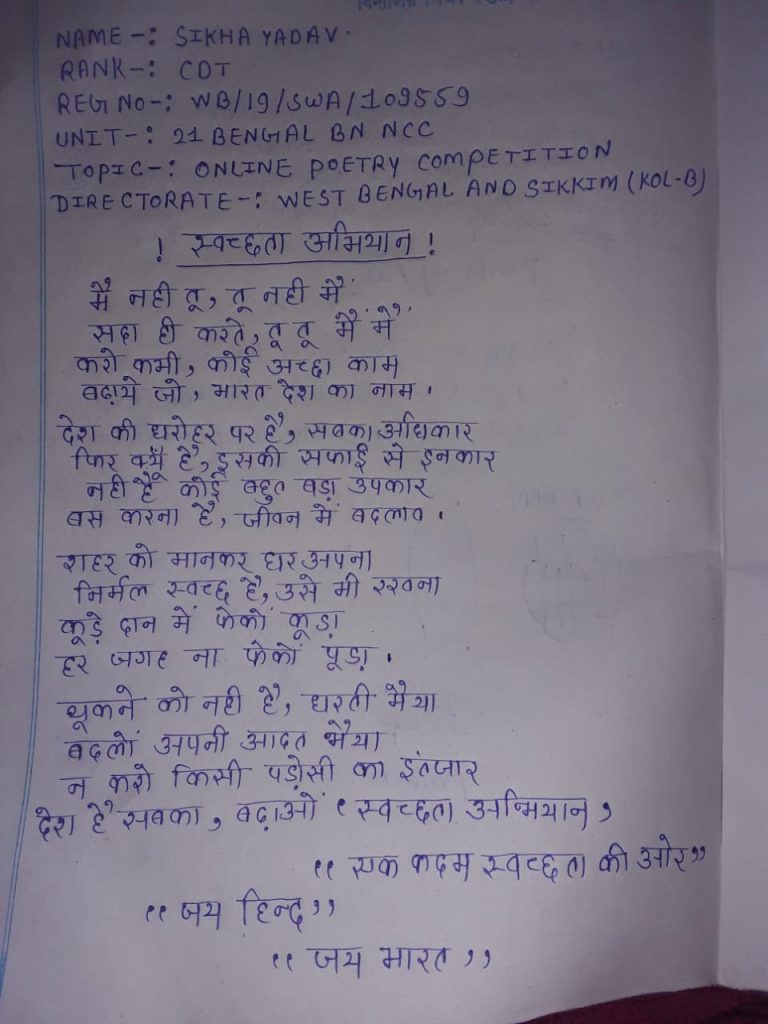 NAME -: SIKHA YADAV.
RANK-: CDT
REG NO-: WB/19/SWA/109559
UNIT-: 21 BENGAL BN NCC
TOPIC-: ONLINE POETRY COMPETITION
DIRECTORATE-: WEST BENGAL AND SIKKIM (KOL-B)
! स्वच्छता अभियान !
मै नही तू, तू नही मैं
सदा ही करते, तू तू मैं मैं
करो कभी, कोई अच्छा काम
बढ़ाये जो, भारत देश का नाम .
देश की धरोहर पर है, सबका अधिकार
फिर क्यूँ है, इसकी सफाई से इनकार
नही है कोई बहुत बड़ा उपकार
बस करना है, जीवन में बदलाव .
शहर को मानकर घर अपना
निर्मल स्वच्छ है, उसे भी रखना
कूड़े दान में फेकों कूड़ा
हर जगह ना फेकों पूड़ा .
थूकने को नही है, धरती मैया
बदलों अपनी आदत भैया
न करो किसी पड़ोसी का इंतजार
देश है सबका, बढ़ाओं ' स्वच्छता अभियान '
" एक कदम स्वच्छता की ओर "
" जय हिन्द "
" जय भारत "